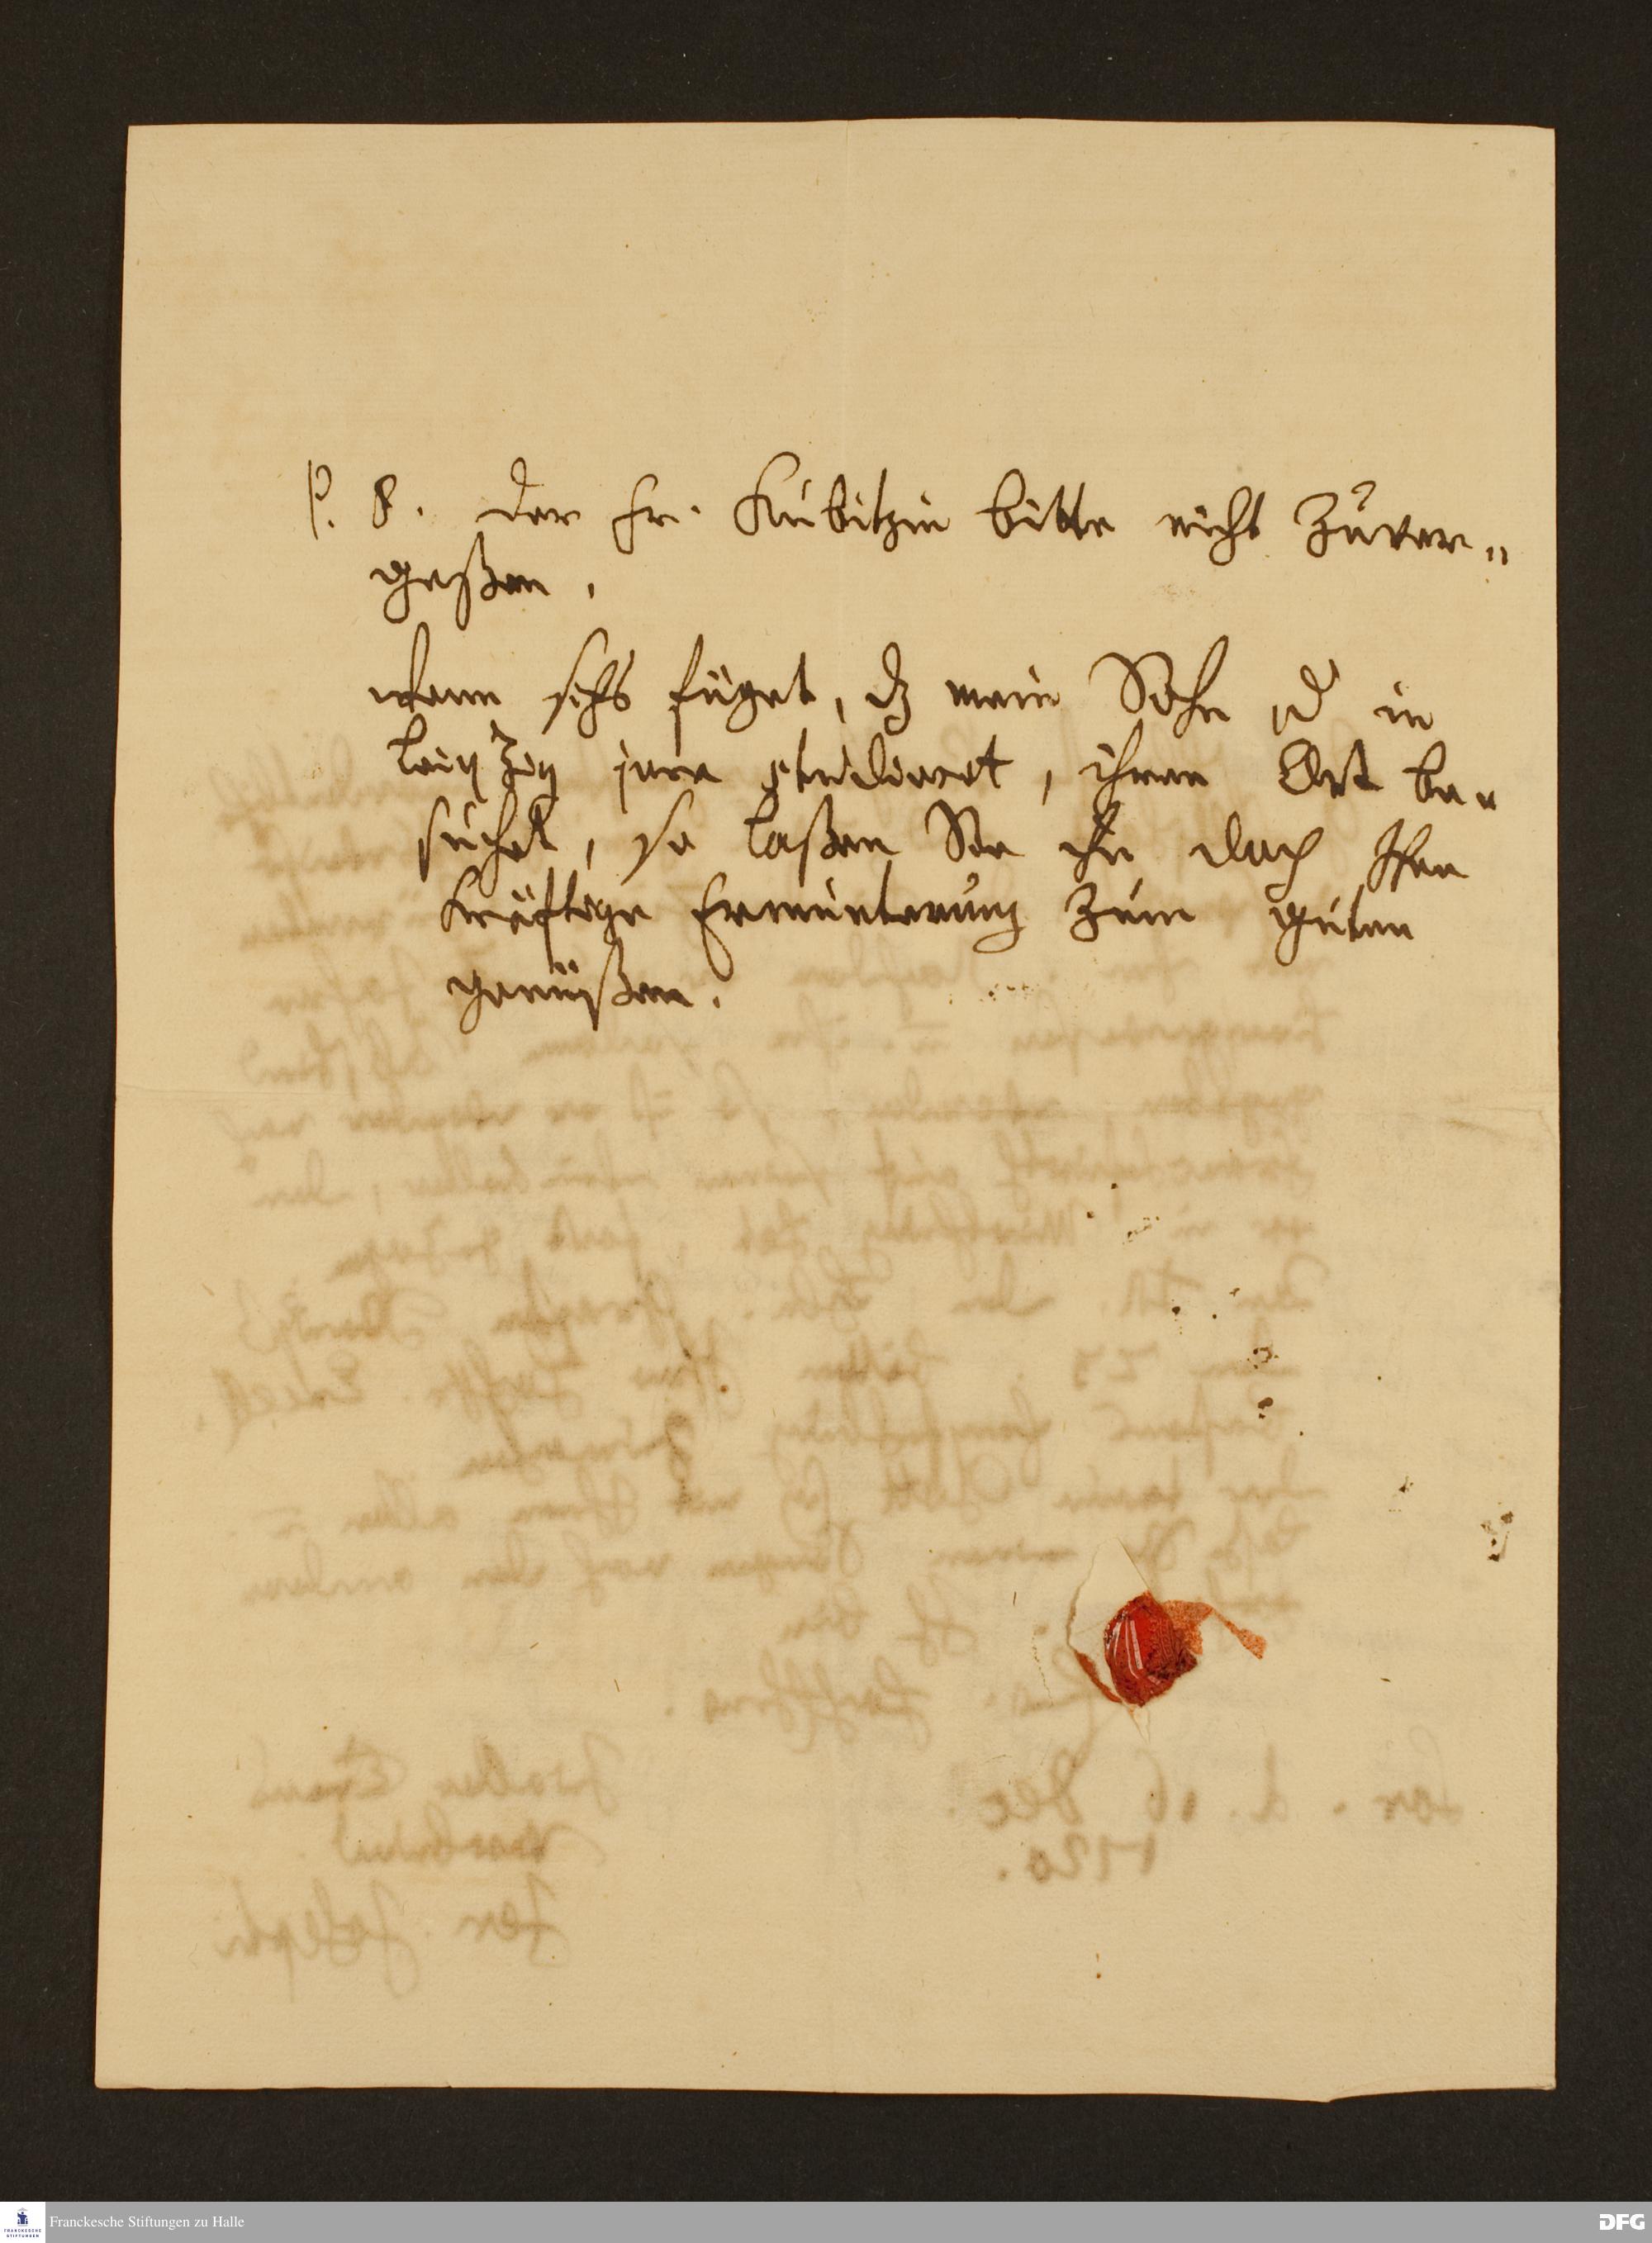 P. S. Der Fr. Kubitzin bitte nicht zu ver-
geßen.
Wenn sichs füget, dz mein Sohn der in
Leipzig jura studieret, ihren Ort be-
suchet, so laßen Sie ihn doch Ihre
kräftige Ermunterung zum guten
genüßen.
Franckesche Stiftungen zu Halle
FRANCKESCHE
STIFTUNGEN
DFG